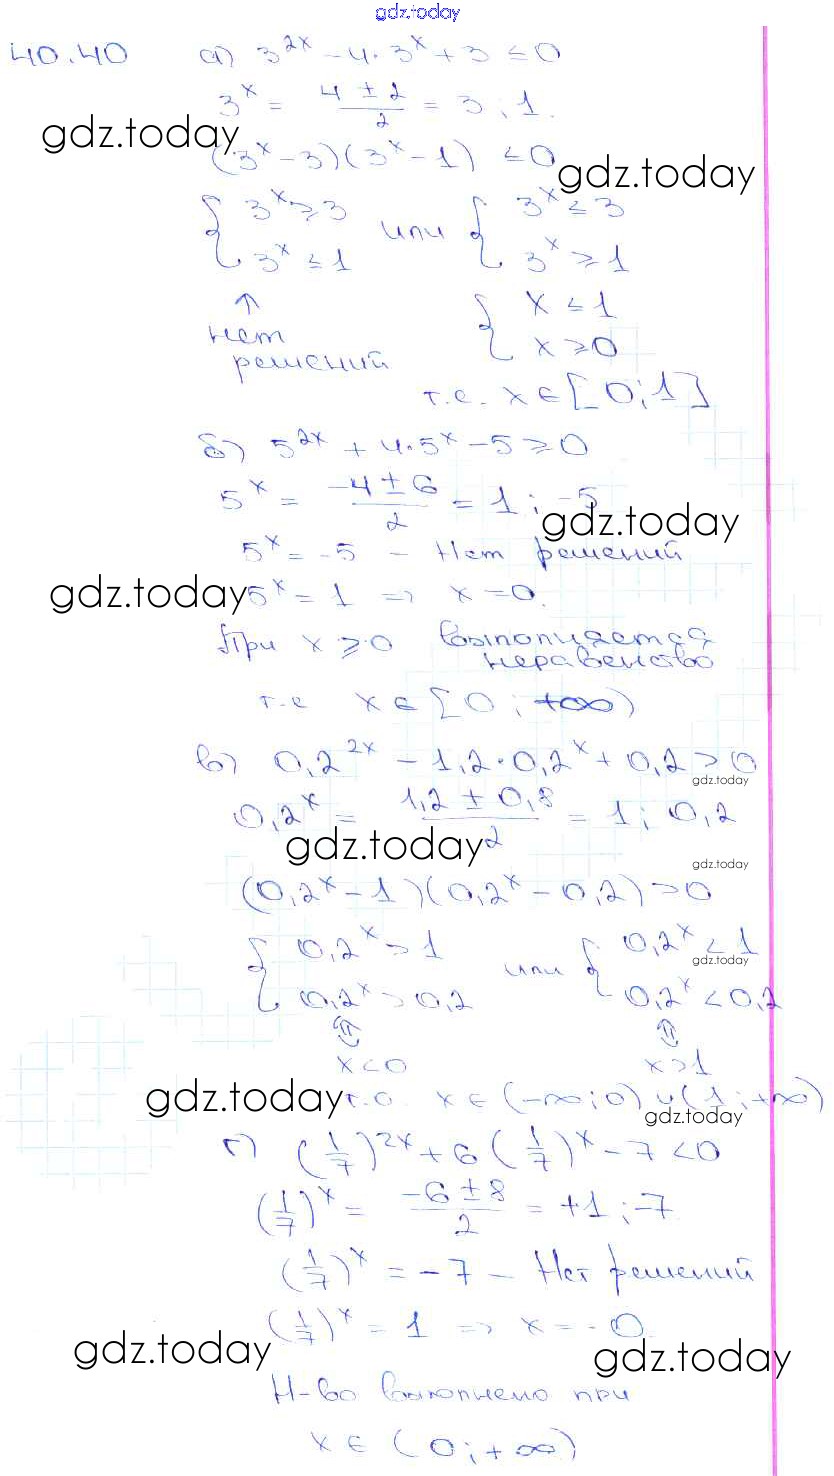 gdz.today
40.40 а) 3^{2x} - 4·3^x + 3 ≤ 0
3^x = \frac{4 ± 2}{2} = 3; 1.
gdz.today
(3^x - 3)(3^x - 1) ≤ 0
gdz.today
{ 3^x ≥ 3 или { 3^x ≤ 3
3^x ≤ 1 3^x ≥ 1
↑ { x ≤ 1
нет x ≥ 0
решений
т.е. x ∈ [0; 1]
б) 5^{2x} + 4·5^x - 5 ≥ 0
5^x = \frac{-4 ± 6}{2} = 1; -5
gdz.today
5^x = -5 - Нет решений
gdz.today 5^x = 1 => x = 0.
При x ≥ 0 выполняется
неравенство
т.е x ∈ [0; +∞)
в) 0,2^{2x} - 1,2·0,2^x + 0,2 > 0
gdz.today
0,2^x = \frac{1,2 ± 0,8}{2} = 1; 0,2
gdz.today
gdz.today
(0,2^x - 1)(0,2^x - 0,2) > 0
{ 0,2^x > 1 или { 0,2^x < 1
gdz.today
0,2^x > 0,2 0,2^x < 0,2
⇕ ⇕
x < 0 x > 1
gdz.today т.о. x ∈ (-∞; 0) ∪ (1; +∞)
gdz.today
г) (\frac{1}{7})^{2x} + 6(\frac{1}{7})^x - 7 < 0
(\frac{1}{7})^x = \frac{-6 ± 8}{2} = +1; -7
(\frac{1}{7})^x = -7 - Нет решений
(\frac{1}{7})^x = 1 => x = -0
gdz.today
gdz.today
Н-во выполнено при
x ∈ (0; +∞)